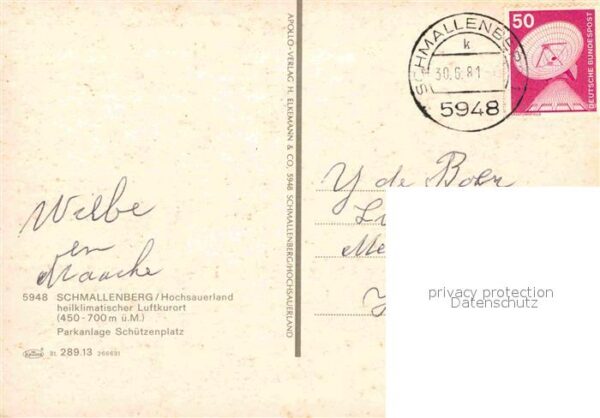 50
DEUTSCHE BUNDESPOST
SCHMALLENBERG 1
k
30.6.81
5948
APOLLO-VERLAG H. ELKEMANN & CO., 5948 SCHMALLENBERG/HOCHSAUERLAND
Y de Boer
privacy protection
Datenschutz
Wilbe
en
Maaike
5948 SCHMALLENBERG/Hochsauerland
heilklimatischer Luftkurort
(450-700 m ü.M.)
Parkanlage Schützenplatz
St. 289.13 266691